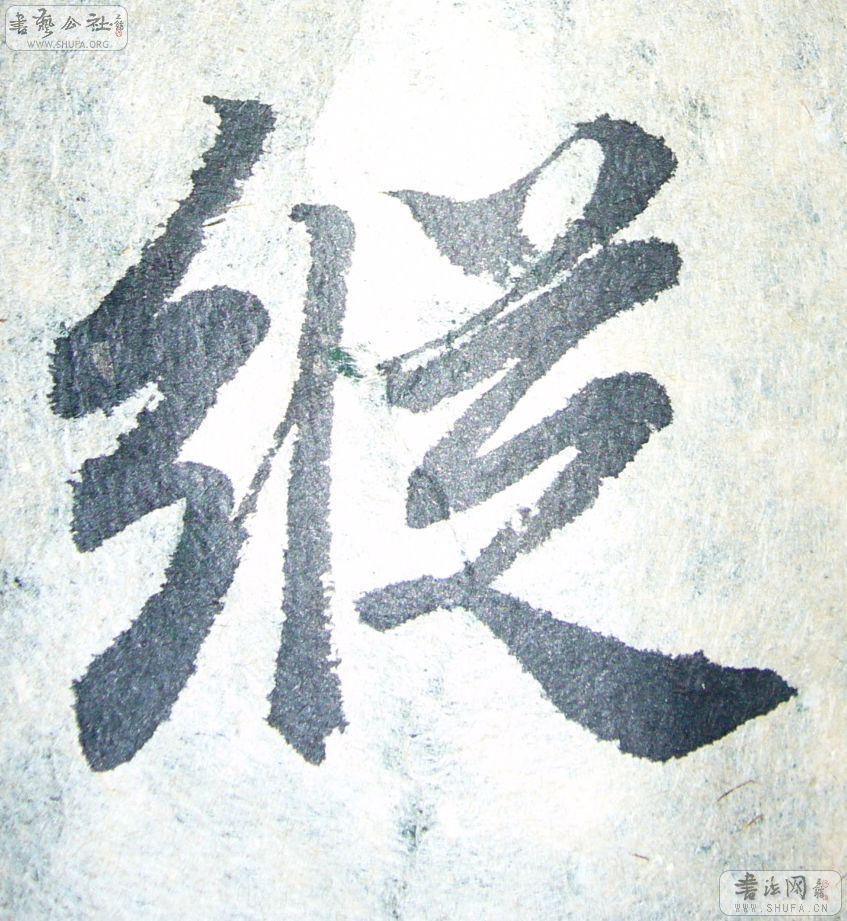 書藝公社
WWW.SHUFA.ORG
縱
書法网
WWW.SHUFA.CN